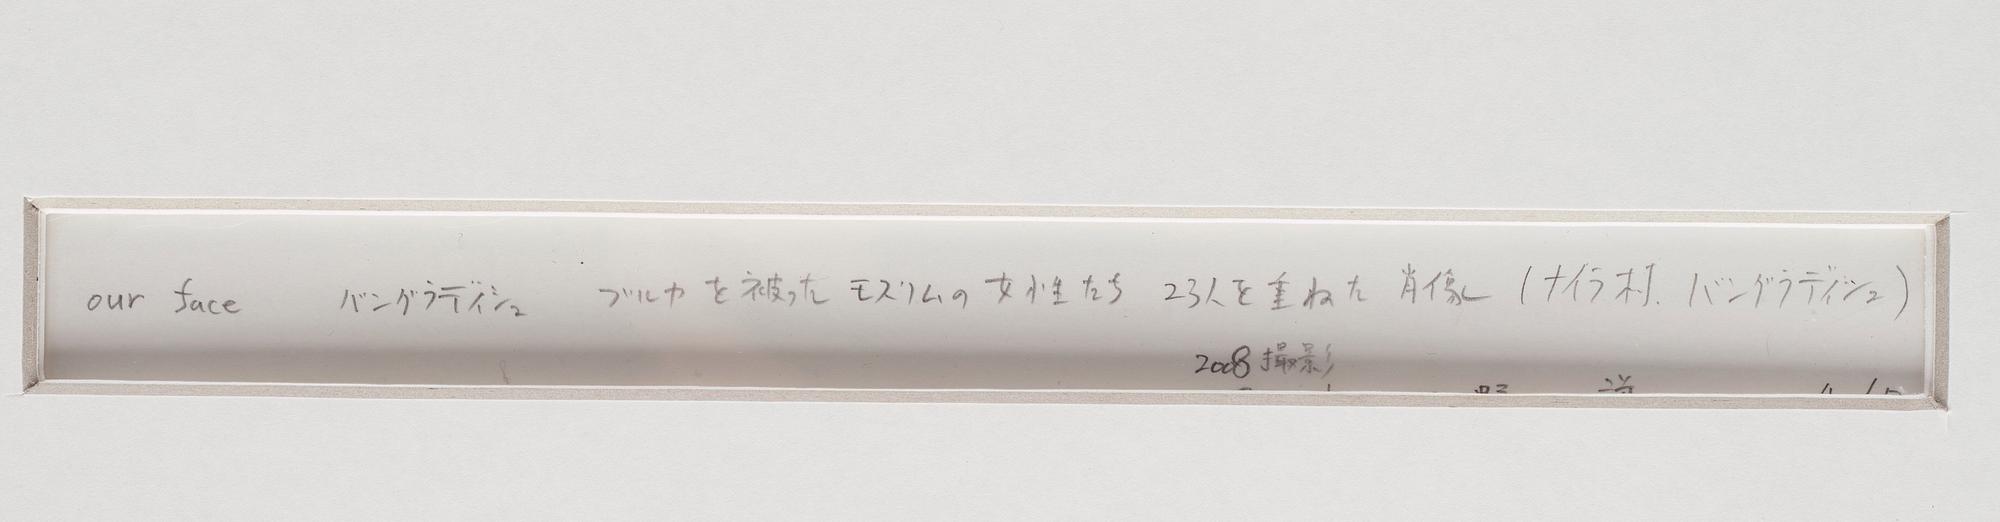 our face バングラディシュ ブルカを被ったモズリムの女性たち 23人を重ねた肖像 (ナイラ村. バングラディシュ)
2008 撮影